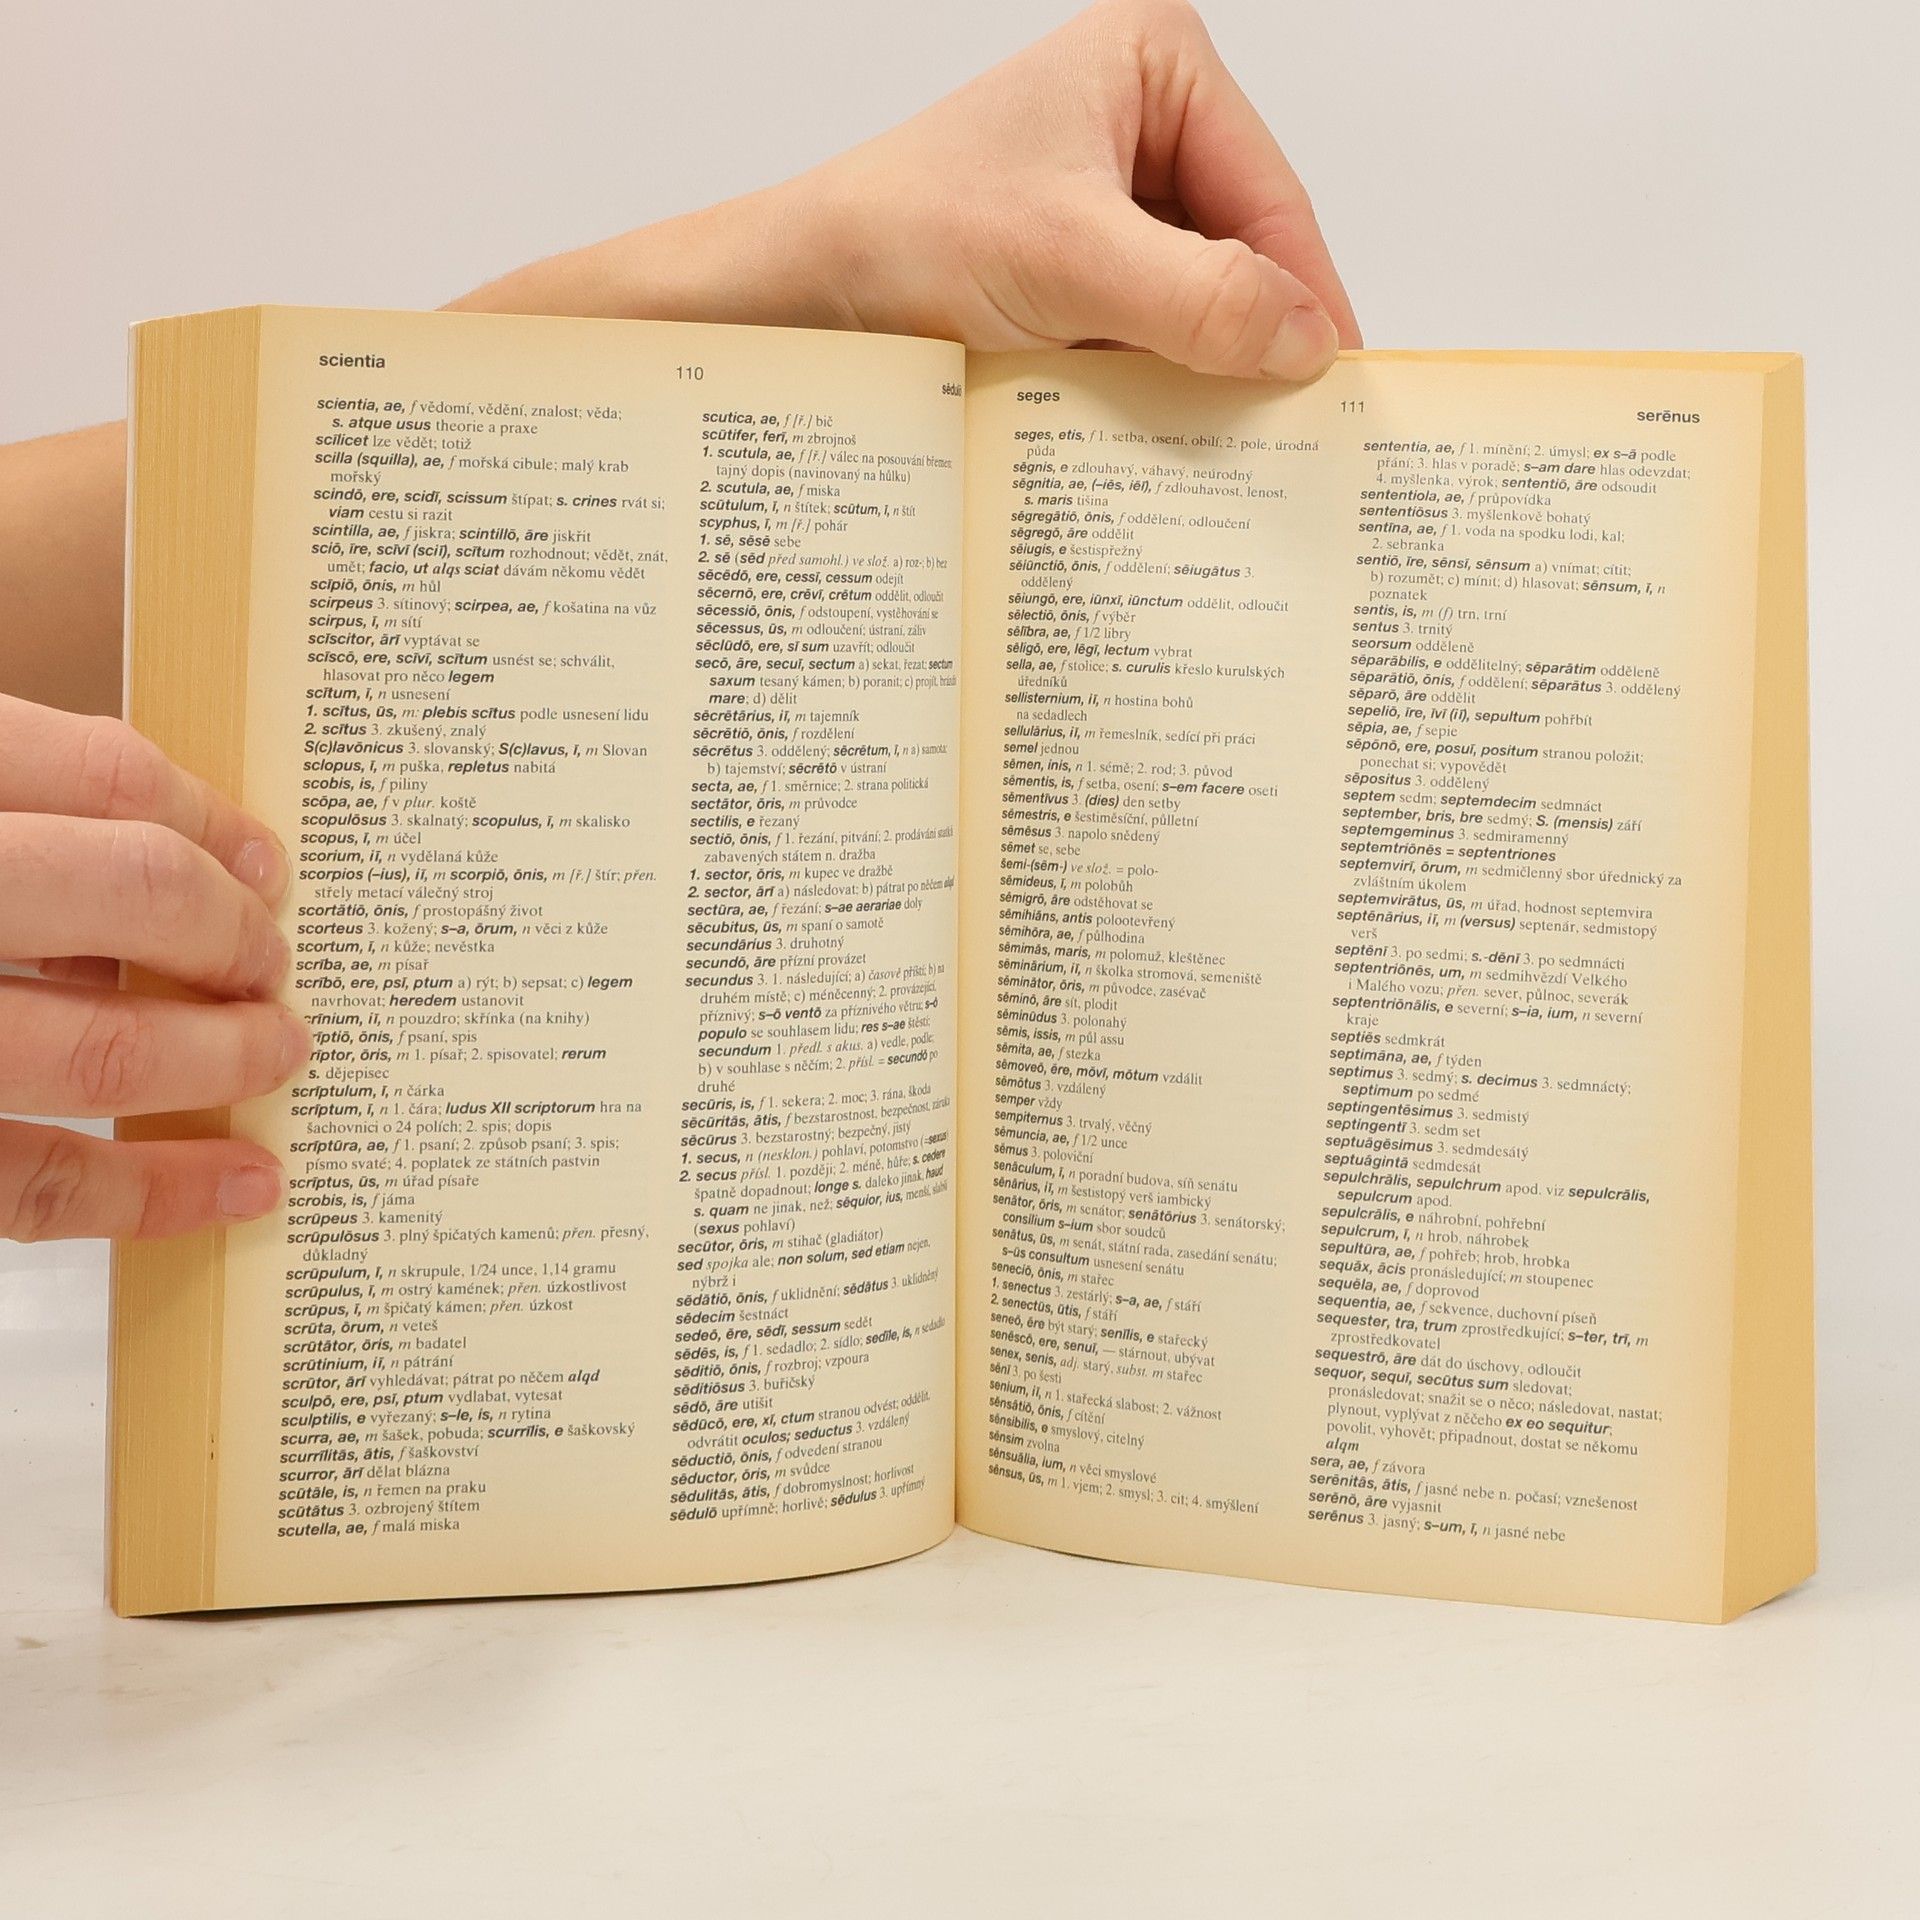 scientia
110
sēdulō
scientia, ae, f vědomí, vědění, znalost; věda;
s. atque usus theorie a praxe
scīlicet lze vědět; totiž
scilla (squilla), ae, f mořská cibule; malý krab
mořský
scindō, ere, scidī, scissum štípat; s. crines rvát si;
viam cestu si razit
scintilla, ae, f jiskra; scintillō, āre jiskřit
sciō, īre, scīvī (sciī), scītum rozhodnout; vědět, znát,
umět; facio, ut alqs sciat dávám někomu vědět
scīpiō, ōnis, m hůl
scirpeus 3. sítinový; scirpea, ae, f košatina na vůz
scirpus, ī, m sítí
scīscitor, ārī vyptávat se
scīscō, ere, scīvī, scītum usnést se; schválit,
hlasovat pro něco legem
scītum, ī, n usnesení
1. scītus, ūs, m: plebis scītus podle usnesení lidu
2. scītus 3. zkušený, znalý
S(c)lavōnicus 3. slovanský; S(c)lavus, ī, m Slovan
sclopus, ī, m puška, repletus nabitá
scobis, is, f piliny
scōpa, ae, f v plur. koště
scopulōsus 3. skalnatý; scopulus, ī, m skalisko
scopus, ī, m účel
scorium, iī, n vydělaná kůže
scorpios (–ius), iī, m scorpiō, ōnis, m [ř.] štír; přen.
střely metací válečný stroj
scortātiō, ōnis, f prostopášný život
scorteus 3. kožený; s–a, ōrum, n věci z kůže
scortum, ī, n kůže; nevěstka
scrība, ae, m písař
scrībō, ere, psī, ptum a) rýt; b) sepsat; c) legem
navrhovat; heredem ustanovit
crīnium, iī, n pouzdro; skřínka (na knihy)
rīptiō, ōnis, f psaní, spis
rīptor, ōris, m 1. písař; 2. spisovatel; rerum
s. dějepisec
scrīptulum, ī, n čárka
scrīptum, ī, n 1. čára; ludus XII scriptorum hra na
šachovnici o 24 polích; 2. spis; dopis
scrīptūra, ae, f 1. psaní; 2. způsob psaní; 3. spis;
písmo svaté; 4. poplatek ze státních pastvin
scrīptus, ūs, m úřad písaře
scrobis, is, f jáma
scrūpeus 3. kamenitý
scrūpulōsus 3. plný špičatých kamenů; přen. přesný,
důkladný
scrūpulum, ī, n skrupule, 1/24 unce, 1,14 gramu
scrūpulus, ī, m ostrý kamének; přen. úzkostlivost
scrūpus, ī, m špičatý kámen; přen. úzkost
scrūta, ōrum, n veteš
scrūtātor, ōris, m badatel
scrūtinium, iī, n pátrání
scrūtor, ārī vyhledávat; pátrat po něčem alqd
sculpō, ere, psī, ptum vydlabat, vytesat
sculptilis, e vyřezaný; s–le, is, n rytina
scurra, ae, m šašek, pobuda; scurrīlis, e šaškovský
scurrīlitās, ātis, f šaškovství
scurror, ārī dělat blázna
scūtāle, is, n řemen na praku
scūtātus 3. ozbrojený štítem
scutella, ae, f malá miska
scutica, ae, f [ř.] bič
scūtifer, ferī, m zbrojnoš
1. scutula, ae, f [ř.] válec na posouvání břemen;
tajný dopis (navinovaný na hůlku)
2. scutula, ae, f miska
scūtulum, ī, n štítek; scūtum, ī, n štít
scyphus, ī, m [ř.] pohár
1. sē, sēsē sebe
2. sē (sēd před samohl.) ve slož. a) roz-; b) bez
sēcēdō, ere, cessī, cessum odejít
sēcernō, ere, crēvī, crētum oddělit, odloučit
sēcessiō, ōnis, f odstoupení, vystěhování se
sēcessus, ūs, m odloučení; ústraní, záliv
sēclūdō, ere, sī sum uzavřít; odloučit
secō, āre, secuī, sectum a) sekat, řezat; sectum
saxum tesaný kámen; b) poranit; c) projít,
mare; d) dělit
sēcrētārius, iī, m tajemník
sēcrētiō, ōnis, f rozdělení
sēcrētus 3. oddělený; sēcrētum, ī, n a) samota;
b) tajemství; sēcrētō v ústraní
secta, ae, f 1. směrnice; 2. strana politická
sectātor, ōris, m průvodce
sectilis, e řezaný
sectiō, ōnis, f 1. řezání, pitvání; 2. prodávání statků
zabavených státem n. dražba
1. sector, ōris, m kupec ve dražbě
2. sector, ārī a) následovat; b) pátrat po něčem alqd
sectūra, ae, f řezání; s–ae aerariae doly
sēcubitus, ūs, m spaní o samotě
secundārius 3. druhotný
secundō, āre přízní provázet
secundus 3. 1. následující; a) časově příští; b) na
druhém místě; c) méněcenný; 2. provázející,
příznivý; s–ō ventō za příznivého větru; s–ō
populo se souhlasem lidu; res s–ae štěstí;
secundum 1. předl. s akus. a) vedle, podle;
b) v souhlase s něčím; 2. přísl. = secundō po
druhé
secūris, is, f 1. sekera; 2. moc; 3. rána, škoda
sēcūritās, ātis, f bezstarostnost, bezpečnost, záruka
sēcūrus 3. bezstarostný; bezpečný, jistý
1. secus, n (nesklon.) pohlaví, potomstvo (=sexus)
2. secus přísl. 1. později; 2. méně, hůře; s. cedere
špatně dopadnout; longe s. daleko jinak, haud
s. quam ne jinak, než; sēquior, ius, menší, slabší
(sexus pohlaví)
secūtor, ōris, m stihač (gladiátor)
sed spojka ale; non solum, sed etiam nejen,
nýbrž i
sēdātiō, ōnis, f uklidnění; sēdātus 3. uklidněný
sēdecim šestnáct
sedeō, ēre, sēdī, sessum sedět
sēdēs, is, f 1. sedadlo; 2. sídlo; sedīle, is, n sedadlo
sēditiō, ōnis, f rozbroj; vzpoura
sēditiōsus 3. buřičský
sēdō, āre utišit
sēdūcō, ere, xī, ctum stranou odvést; oddělit,
odvrátit oculos; seductus 3. vzdálený
sēductiō, ōnis, f odvedení stranou
sēductor, ōris, m svůdce
sēdulitās, ātis, f dobromyslnost; horlivost
sēdulō upřímně; horlivě; sēdulus 3. upřímný
seges
111
serēnus
seges, etis, f 1. setba, osení, obilí; 2. pole, úrodná
půda
sēgnis, e zdlouhavý, váhavý, neúrodný
sēgnitia, ae, (–iēs, iēī), f zdlouhavost, lenost,
s. maris tišina
sēgregātiō, ōnis, f oddělení, odloučení
sēgregō, āre oddělit
sēiugis, e šestispřežný
sēiūnctiō, ōnis, f oddělení; sēiugātus 3.
oddělený
sēiungō, ere, iūnxī, iūnctum oddělit, odloučit
sēlectiō, ōnis, f výběr
sēlībra, ae, f 1/2 libry
sēligō, ere, lēgī, lectum vybrat
sella, ae, f stolice; s. curulis křeslo kurulských
úředníků
sellisternium, iī, n hostina bohů
na sedadlech
sellulārius, iī, m řemeslník, sedící při práci
semel jednou
sēmen, inis, n 1. sémě; 2. rod; 3. původ
sēmentis, is, f setba, osení; s–em facere oseti
sēmentīvus 3. (dies) den setby
sēmestris, e šestiměsíční, půlletní
sēmēsus 3. napolo snědený
sēmet se, sebe
šemi-(sēm-) ve slož. = polo-
sēmideus, ī, m polobůh
sēmigrō, āre odstěhovat se
sēmihiāns, antis polootevřený
sēmihōra, ae, f půlhodina
sēmimās, maris, m polomuž, kleštěnec
sēminārium, iī, n školka stromová, semeniště
sēminātor, ōris, m původce, zasévač
sēminō, āre sít, plodit
sēminūdus 3. polonahý
sēmis, issis, m půl assu
sēmita, ae, f stezka
sēmoveō, ēre, mōvī, mōtum vzdálit
sēmōtus 3. vzdálený
semper vždy
sempiternus 3. trvalý, věčný
sēmuncia, ae, f 1/2 unce
sēmus 3. poloviční
senāculum, ī, n poradní budova, síň senátu
sēnārius, iī, m šestistopý verš iambický
senātor, ōris, m senátor; senātōrius 3. senátorský;
consilium s–ium sbor soudců
senātus, ūs, m senát, státní rada, zasedání senátu;
s–ūs consultum usnesení senátu
seneciō, ōnis, m stařec
1. senectus 3. zestárlý; s–a, ae, f stáří
2. senectūs, ūtis, f stáří
seneō, ēre být starý; senīlis, e stařecký
senēscō, ere, senuī, — stárnout, ubývat
senex, senis, adj. starý, subst. m stařec
sēnī 3. po šesti
senium, iī, n 1. stařecká slabost; 2. vážnost
sēnsātiō, ōnis, f cítění
sēnsibilis, e smyslový, citelný
sēnsim zvolna
sēnsuālia, ium, n věci smyslové
sēnsus, ūs, m 1. vjem; 2. smysl; 3. cit; 4. smýšlení
sententia, ae, f 1. mínění; 2. úmysl; ex s–ā podle
přání; 3. hlas v poradě; s–am dare hlas odevzdat;
4. myšlenka, výrok; sententiō, āre odsoudit
sententiola, ae, f průpovídka
sententiōsus 3. myšlenkově bohatý
sentīna, ae, f 1. voda na spodku lodi, kal;
2. sebranka
sentiō, īre, sēnsī, sēnsum a) vnímat; cítit;
b) rozumět; c) mínit; d) hlasovat; sēnsum, ī, n
poznatek
sentis, is, m (f) trn, trní
sentus 3. trnitý
seorsum odděleně
sēparābilis, e oddělitelný; sēparātim odděleně
sēparātiō, ōnis, f oddělení; sēparātus 3. oddělený
sēparō, āre oddělit
sepeliō, īre, īvī (iī), sepultum pohřbít
sēpia, ae, f sepie
sēpōnō, ere, posuī, positum stranou položit;
ponechat si; vypovědět
sēpositus 3. oddělený
septem sedm; septemdecim sedmnáct
september, bris, bre sedmý; S. (mensis) září
septemgeminus 3. sedmiramenný
septemtriōnēs = septentriones
septemvirī, ōrum, m sedmičlenný sbor úřednický za
zvláštním úkolem
septemvirātus, ūs, m úřad, hodnost septemvira
septēnārius, iī, m (versus) septenár, sedmistopý
verš
septēnī 3. po sedmi; s.-dēnī 3. po sedmnácti
septentriōnēs, um, m sedmihvězdí Velkého
i Malého vozu; přen. sever, půlnoc, severák
septentriōnālis, e severní; s–ia, ium, n severní
kraje
septiēs sedmkrát
septimāna, ae, f týden
septimus 3. sedmý; s. decimus 3. sedmnáctý;
septimum po sedmé
septingentēsimus 3. sedmistý
septingentī 3. sedm set
septuāgēsimus 3. sedmdesátý
septuāgintā sedmdesát
sepulchrālis, sepulchrum apod. viz sepulcrālis,
sepulcrum apod.
sepulcrālis, e náhrobní, pohřební
sepulcrum, ī, n hrob, náhrobek
sepultūra, ae, f pohřeb; hrob, hrobka
sequāx, ācis pronásledující; m stoupenec
sequēla, ae, f doprovod
sequentia, ae, f sekvence, duchovní píseň
sequester, tra, trum zprostředkující; s–ter, trī, m
zprostředkovatel
sequestrō, āre dát do úschovy, odloučit
sequor, sequī, secūtus sum sledovat;
pronásledovat; snažit se o něco; následovat, nastat;
plynout, vyplývat z něčeho ex eo sequitur;
povolit, vyhovět; připadnout, dostat se někomu
alqm
sera, ae, f závora
serēnitās, ātis, f jasné nebe n. počasí; vznešenost
serēnō, āre vyjasnit
serēnus 3. jasný; s–um, ī, n jasné nebe